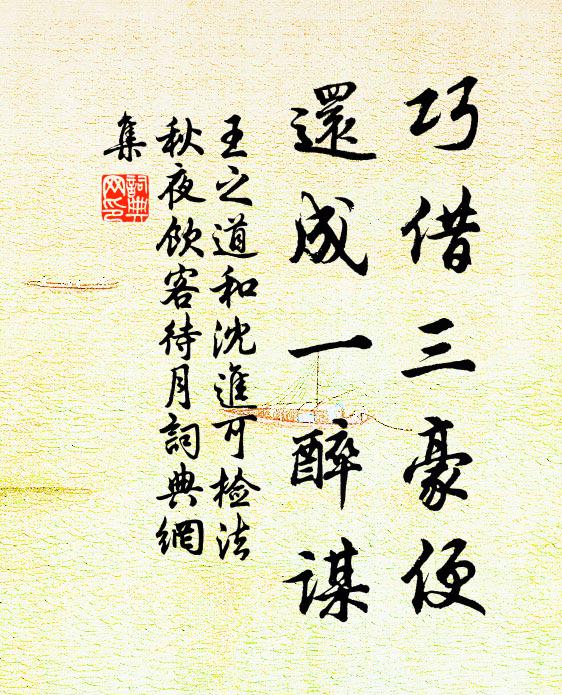 巧借三豪便
還成一醉謀
王之道和沈進可檢法
秋夜飲客待月詞典網
集
詞典網印